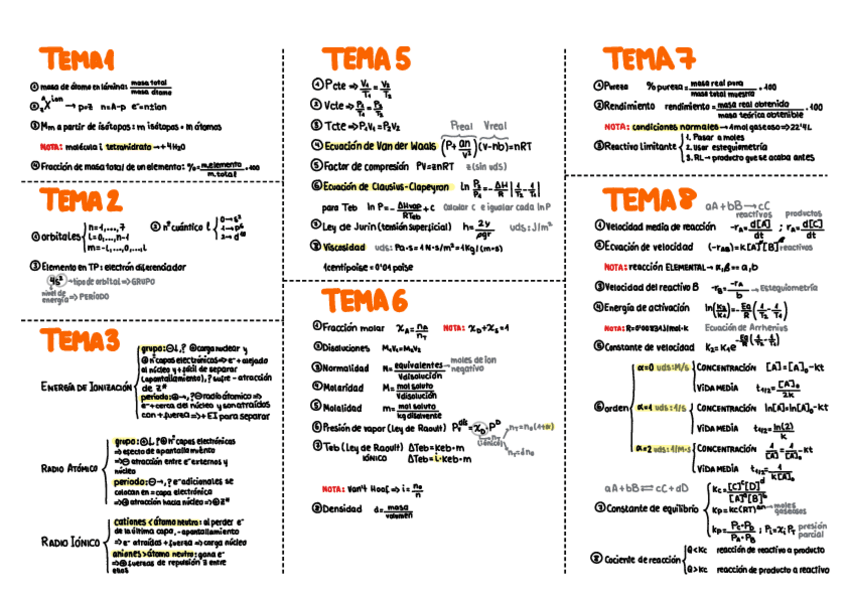 TEMA 1
① masa de átomo en láminas masa total / masa átomo
② ᴬX ion → p=Z n=A-p e⁻=n±ion
③ Mm a partir de isótopos: m isótopos · m átomos
NOTA: molécula i tetrahidrato → +4H₂O
④ Fracción de masa total de un elemento: %= m.elemento / m.total · 100
TEMA 2
① orbitales { n=1,...,7
l=0,...,n-1
m=-l,...,0,...,l
② nº cuántico l { 0→s²
1→p⁶
2→d¹⁰
③ Elemento en TP: electrón diferenciador
4s² → tipo de orbital => GRUPO
nivel de energía => PERÍODO
TEMA 3
ENERGÍA DE IONIZACIÓN
grupo: ⊖↓, ? ⊕ carga nuclear y
⊕ nº capas electrónicas => e⁻ + alejado
al núcleo y + fácil de separar
(apantallamiento), ? sufre - atracción
de Z*
período: ⊕→, ? ⊖ radio atómico =>
e⁻ + cerca del núcleo y son atraídos
con + fuerza => + EI para separar
RADIO ATÓMICO
grupo: ⊕↓, ? ⊕ nº capas electrónicos
=> efecto de apantallamiento
=> ⊖ atracción entre e⁻ externos y
núcleo
período: ⊖→, ? e⁻ adicionales se
colocan en = capa electrónica
=> ⊕ atracción hacia núcleo => ⊕Z*
RADIO IÓNICO
cationes < átomo neutro: al perder e⁻
de la última capa, - apantallamiento
=> e⁻ atraídos + fuerza => carga núcleo
aniones > átomo neutro: gana e⁻
=> ⊕ fuerzas de repulsión z entre
ellos
TEMA 5
① Pcte => V₁/T₁ = V₂/T₂
② Vcte => P₁/T₁ = P₂/T₂
③ Tcte => P₁V₁ = P₂V₂
Preal Vreal
④ Ecuación de Van der Waals (P + an/v²)(V-nb)=nRT
⑤ Factor de compresión PV=znRT z(sin uds)
⑥ Ecuación de Clausius-Clapeyron ln P₂/P₁ = -ΔH/R |1/T₂ - 1/T₁|
para Teb ln P = -ΔHvap/RTeb + c Calcular c e igualar cada ln P
⑦ Ley de Jurin (tensión superficial) h = 2γ/ρgr uds: J/m²
⑧ Viscosidad uds: Pa·s = 1 N·s/m² = 1Kg/(m·s)
1 centipoise = 0'01 poise
TEMA 6
① Fracción molar χA = nA/nT NOTA: χD+χS=1
② Disoluciones M₁V₁=M₂V₂
③ Normalidad N= equivalentes / Vdisolución → moles de ion negativo
④ Molaridad M= mol soluto / Vdisolución
⑤ Molalidad m= mol soluto / kg disolvente
⑥ Presión de vapor (Ley de Raoult)
⑦ Teb (Ley de Raoult) ΔTeb=Keb·m
IÓNICO ΔTeb=i·Keb·m
NOTA: Van't Hoof => i = 
⑧ Densidad d= masa / volumen
TEMA 7
① Pureza % pureza = masa real pura / masa total muestra · 100
② Rendimiento rendimiento = masa real obtenida / masa teórica obtenible · 100
NOTA: condiciones normales → 1mol gaseoso => 22'4L
③ Reactivo Limitante { 1. Pasar a moles
2. Usar estequiometría
3. RL → producto que se acaba antes
TEMA 8
aA + bB → cC
reactivos productos
① Velocidad media de reacción -rA = d[A]/dt ; rA = d[C]/dt
② Ecuación de velocidad (-rAB)=K[A]ᵅ[B]ᵝ reactivos
NOTA: reacción ELEMENTAL → α,β == a,b
③ Velocidad del reactivo B -rB = -rA/b → Estequiometría
④ Energía de activación ln(K₂/K₁) = -Ea/R (1/T₂ - 1/T₁)
NOTA: R=0'00831kJ/mol·k Ecuación de Arrhenius
⑤ Constante de velocidad K₂ = K₁e^-Ea/R(1/T₂ - 1/T₁)
⑥ orden
α=0 uds:M/s { CONCENTRACIÓN [A]=[A]₀-kt
VIDA MEDIA t₁/₂ = [A]₀/2k
α=1 uds:1/s { CONCENTRACIÓN ln[A]=ln[A]₀-kt
VIDA MEDIA t₁/₂ = ln(2)/k
α=2 uds:1/M·s { CONCENTRACIÓN 1/[A] = 1/[A]₀ - kt
VIDA MEDIA t₁/₂ = 1/k[A]₀
aA + bB ⇌ cC + dD
⑦ Constante de equilibrio
Kc = [C]ᶜ[D]ᵈ / [A]ᵃ[B]ᵇ
Kp = Kc(RT)^Δn → moles gaseosos
Kp = PC·PD / PA·PB ; Pi=χi PT presión parcial
⑧ Cociente de reacción { Q<Kc reacción de reactivo a producto
Q>Kc reacción de producto a reactivo